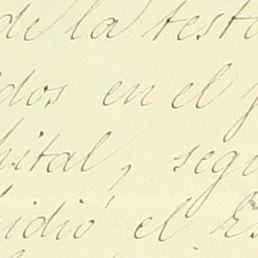 de la testa
idos en el
pital, segu
sidió el